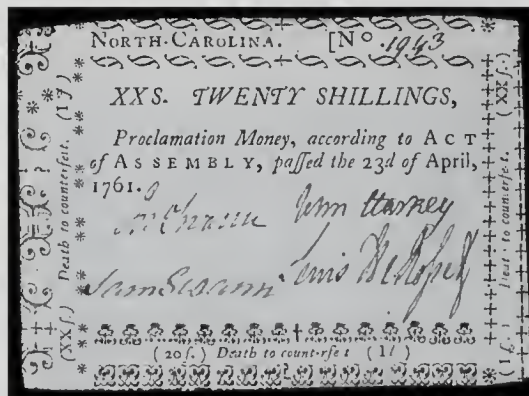 NORTH-CAROLINA. [No. 1943
XXS. TWENTY SHILLINGS,
Proclamation Money, according to ACT
of ASSEMBLY, paſſed the 23d of April,
1761.
John Starkey
Sam Swann Lewis DeRosset
(20ſ.) Death to counterfeit (1l)
(XXſ.) Death to counterfeit. (1l)
(1l.) Death to counterfeit. (XXſ.)